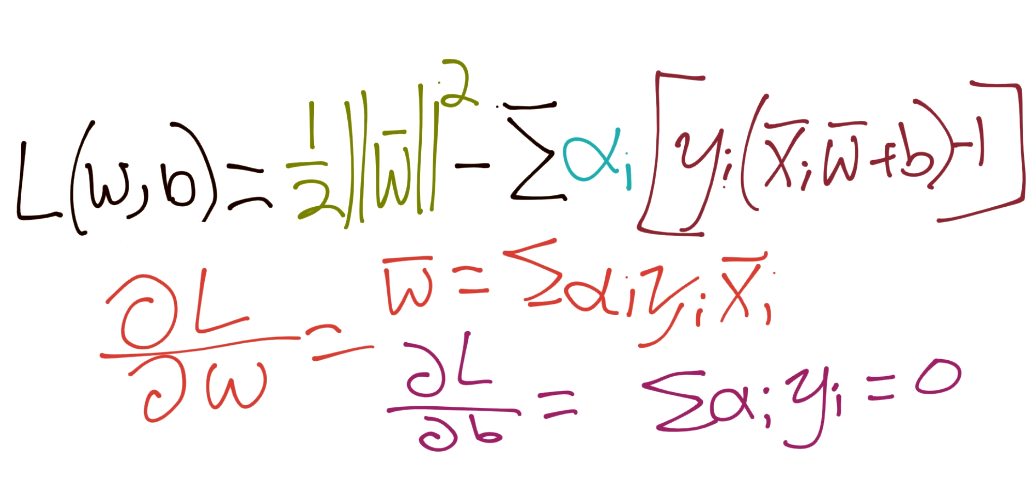 L(w,b) = 1/2 ||w̅||² - Σ αᵢ [yᵢ(x̅ᵢ w̅ + b) - 1]
∂L/∂w = w̅ = Σ αᵢ yᵢ x̅ᵢ
∂L/∂b = Σ αᵢ yᵢ = 0